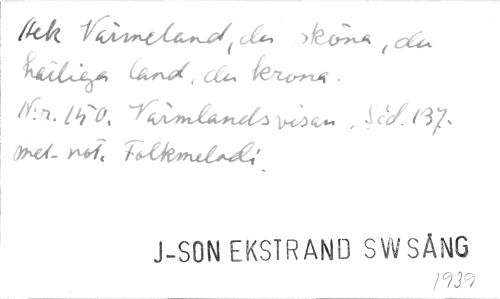 Ack Värmeland, du sköna, du
härliga land, du krona.
N:r. 150. Värmlandsvisan, Sid. 137.
mel- not. Folkmelodi.
J-SON EKSTRAND SWSÅNG
1939